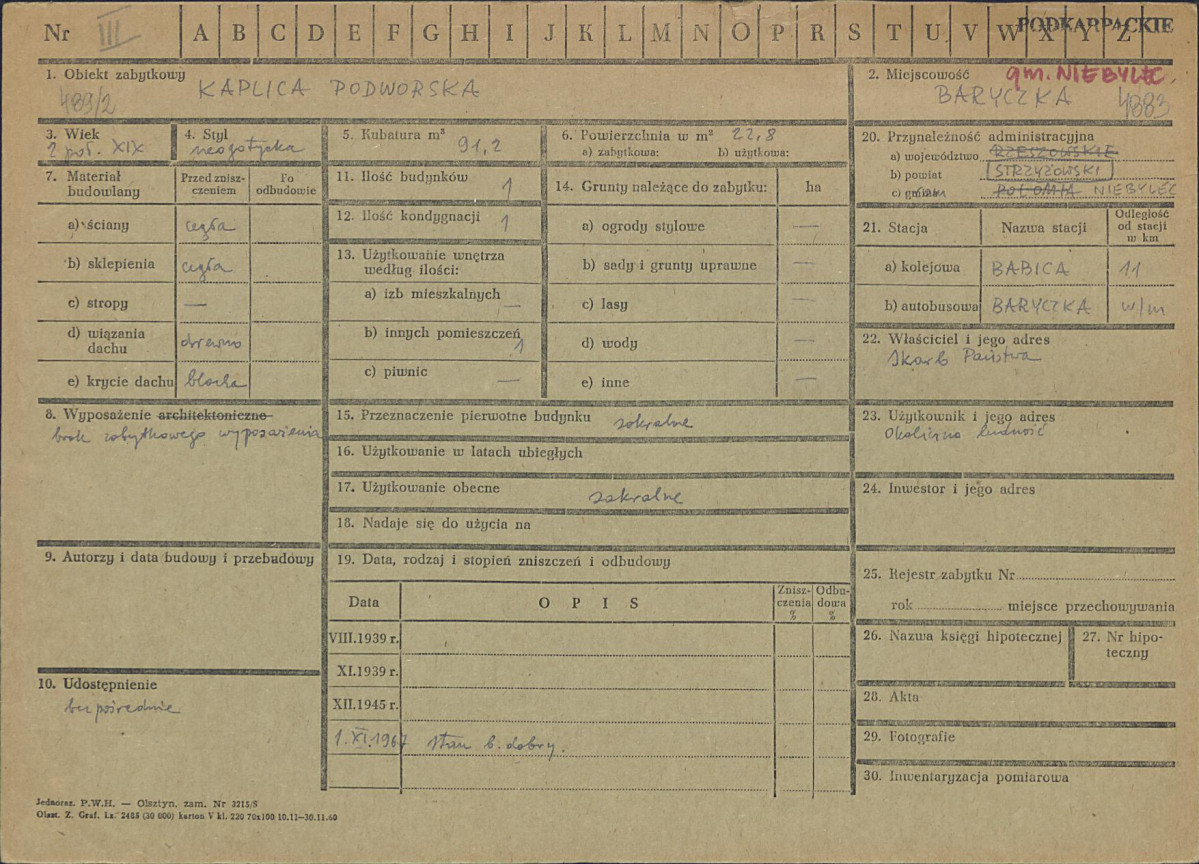 Nr III A B C D E F G H I J K L M N O P R S T U V W X Y Z
PODKARPACKIE
1. Obiekt zabytkowy
KAPLICA PODWORSKA
489/2
2. Miejscowość gm. NIEBYLEC
BARYCZKA 4883
3. Wiek
2 poł. XIX
4. Styl
neogotycka
5. Kubatura m³
91,2
6. Powierzchnia w m² 22,8
a) zabytkowa: b) użytkowa:
7. Materiał budowlany
Przed zniszczeniem
Po odbudowie
a) ściany cegła
b) sklepienia cegła
c) stropy —
d) wiązania dachu drewno
e) krycie dachu blacha
8. Wyposażenie architektoniczne
brak zabytkowego wyposażenia
9. Autorzy i data budowy i przebudowy
10. Udostępnienie
bezpośrednie
11. Ilość budynków 1
12. Ilość kondygnacji 1
13. Użytkowanie wnętrza
według ilości:
a) izb mieszkalnych —
b) innych pomieszczeń 1
c) piwnic —
14. Grunty należące do zabytku: ha
a) ogrody stylowe —
b) sady i grunty uprawne —
c) lasy —
d) wody —
e) inne —
15. Przeznaczenie pierwotne budynku sakralne
16. Użytkowanie w latach ubiegłych
17. Użytkowanie obecne sakralne
18. Nadaje się do użycia na
19. Data, rodzaj i stopień zniszczeń i odbudowy
Data OPIS Zniszczenia % Odbudowa %
VIII.1939 r.
XI.1939 r.
XII.1945 r.
1.XI.1967 stan b. dobry.
20. Przynależność administracyjna
a) województwo RZESZOWSKIE
b) powiat STRZYŻOWSKI
c) gmina POŁOMIA NIEBYLEC
21. Stacja Nazwa stacji Odległość od stacji w km
a) kolejowa BABICA 11
b) autobusowa BARYCZKA w/m
22. Właściciel i jego adres
Skarb Państwa
23. Użytkownik i jego adres
Okoliczna ludność
24. Inwestor i jego adres
25. Rejestr zabytku Nr
rok miejsce przechowywania
26. Nazwa księgi hipotecznej
27. Nr hipoteczny
28. Akta
29. Fotografie
30. Inwentaryzacja pomiarowa
Jednoraz. P.W.H. — Olsztyn, zam. Nr 3215/S
Olszt. Z. Graf. Lz. 2485 (30 000) karton V kl. 220 70x100 10.11—30.11.60